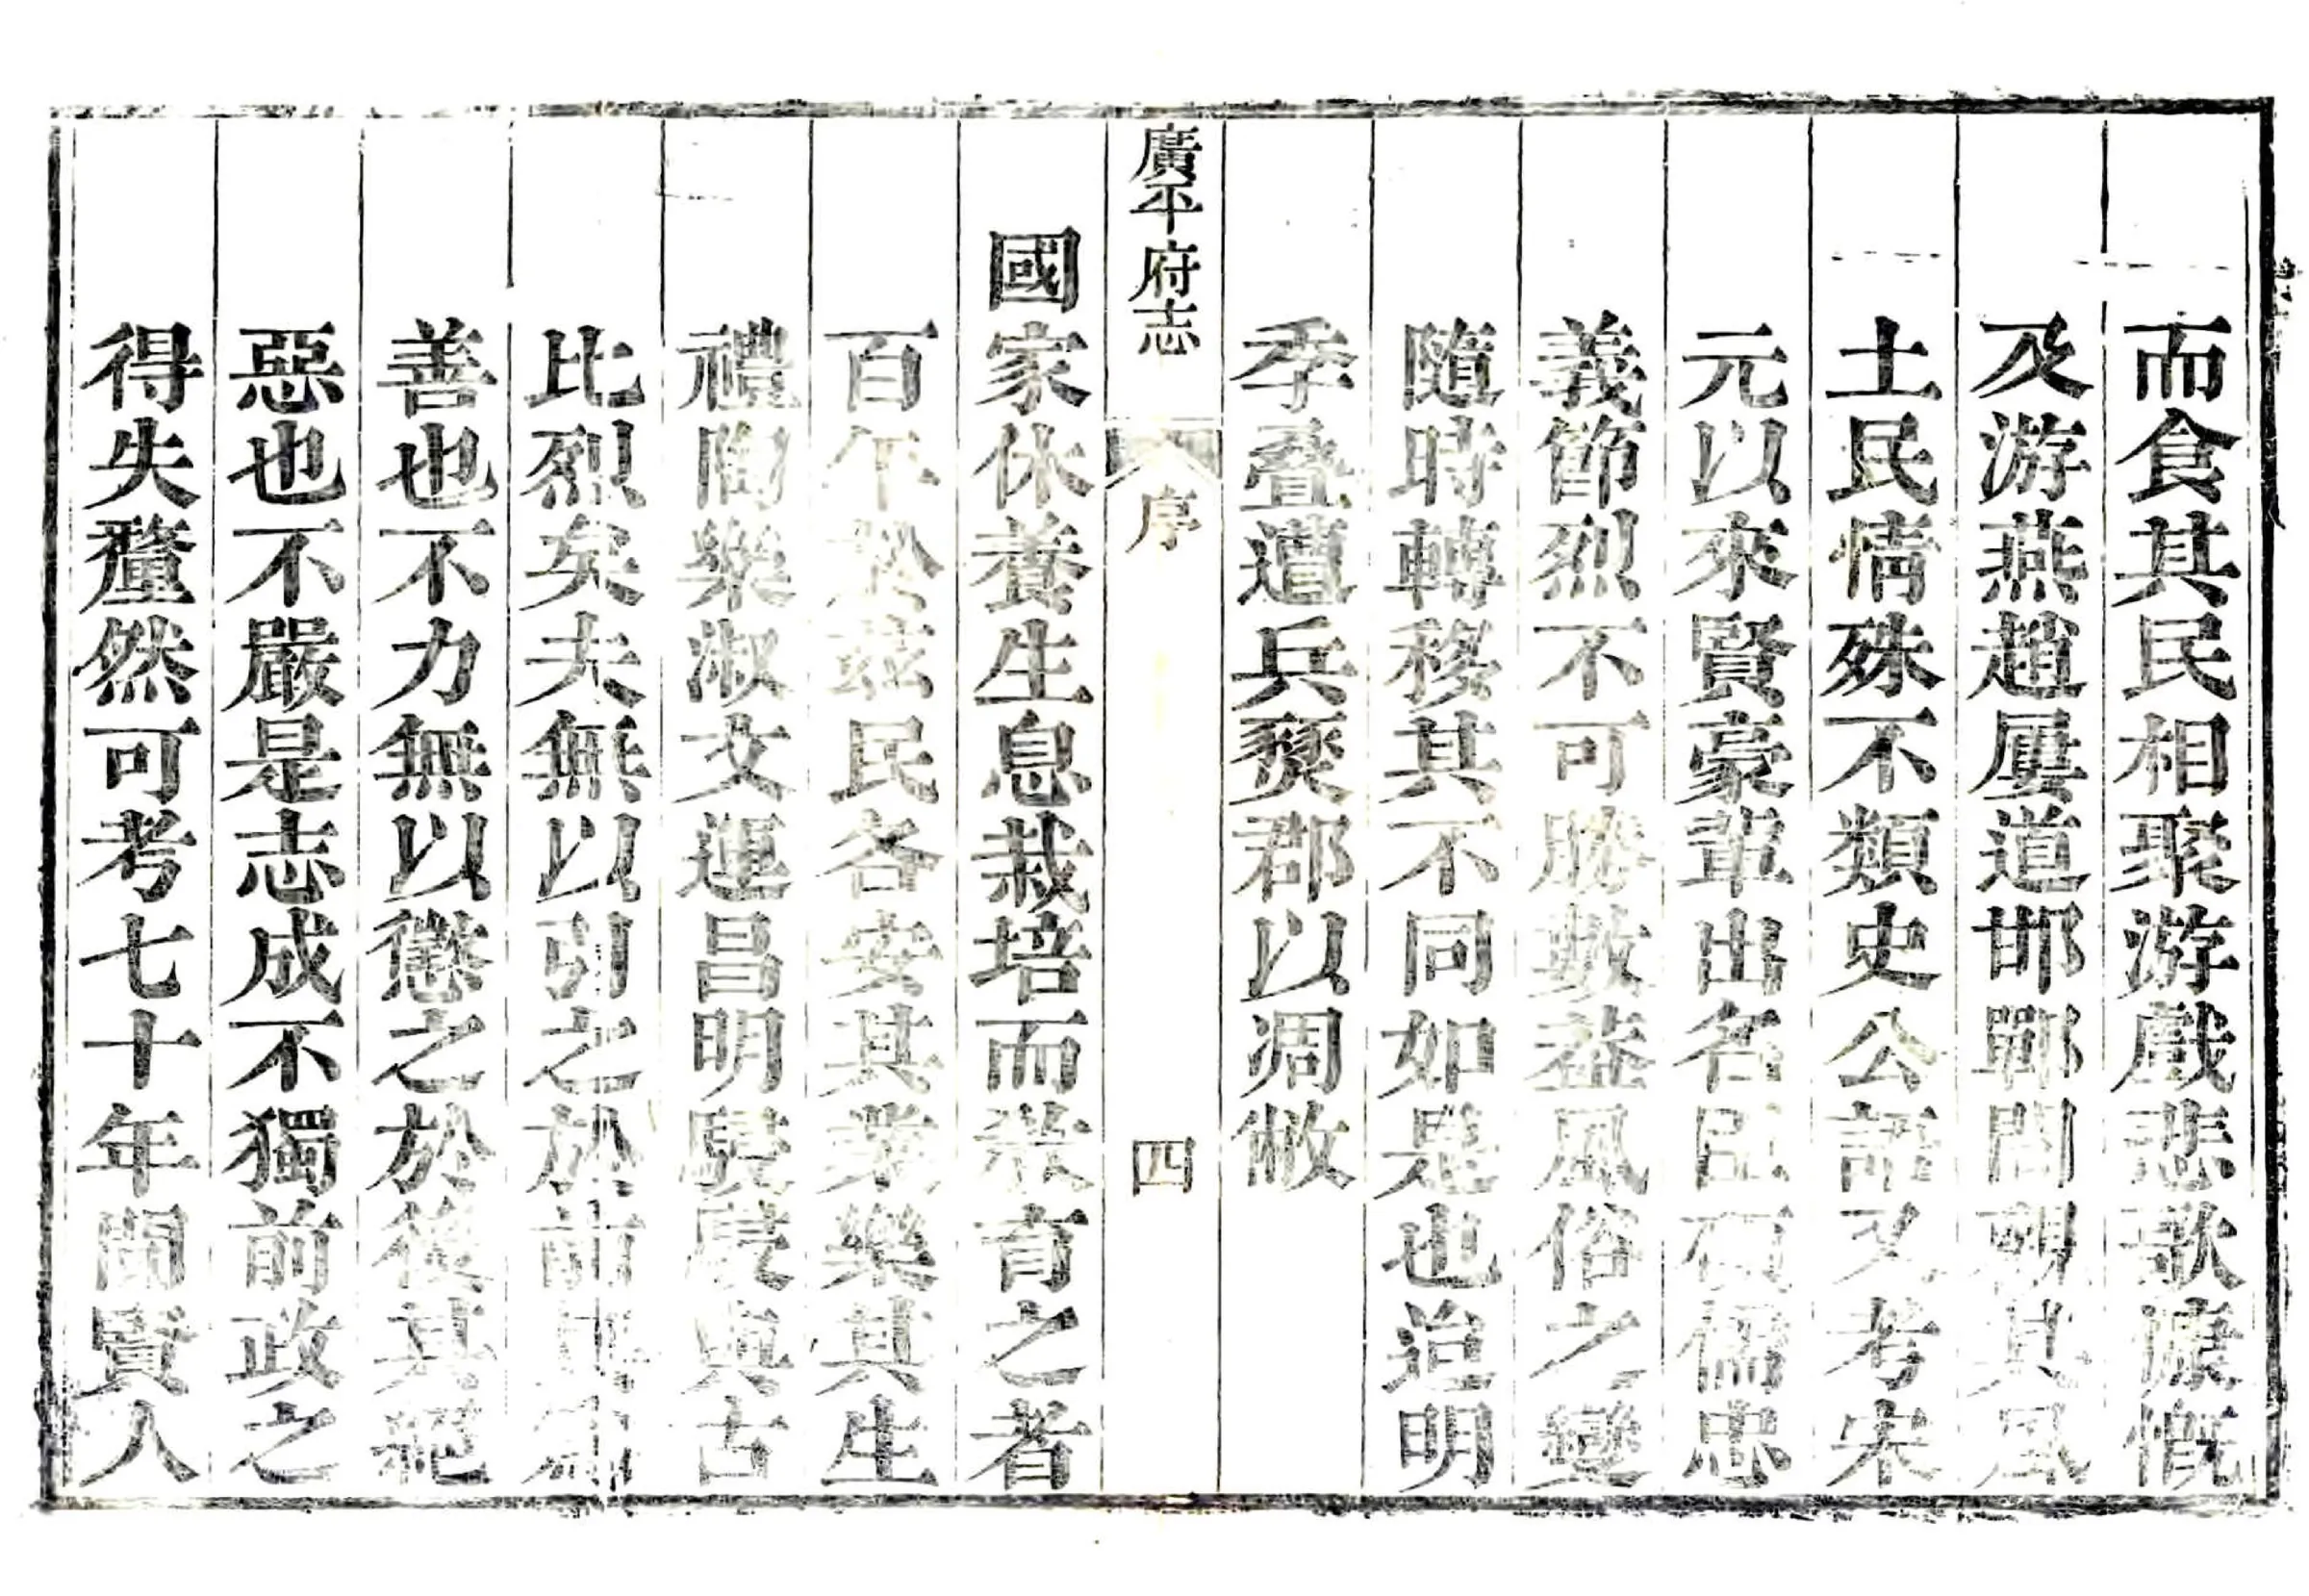 而食其民相聚游戲悲歌慷慨
及游燕趙屢道邯鄲間觀其風
土民情殊不類史公語又考宋
元以來賢豪輩出名臣碩儒忠
義節烈不可勝數葢風俗之變
隨時轉移其不同如是也迨明
季叠遭兵燹郡以凋敝
廣平府志
序
四
國家休養生息栽培而滋育之者
百年於茲民各安其業樂其生
禮陶樂淑文運昌明駸駸與古
比烈矣夫無以引之於前其為
善也不力無以懲之於後其絕
惡也不嚴是志成不獨前政之
得失犛然可考七十年間賢人